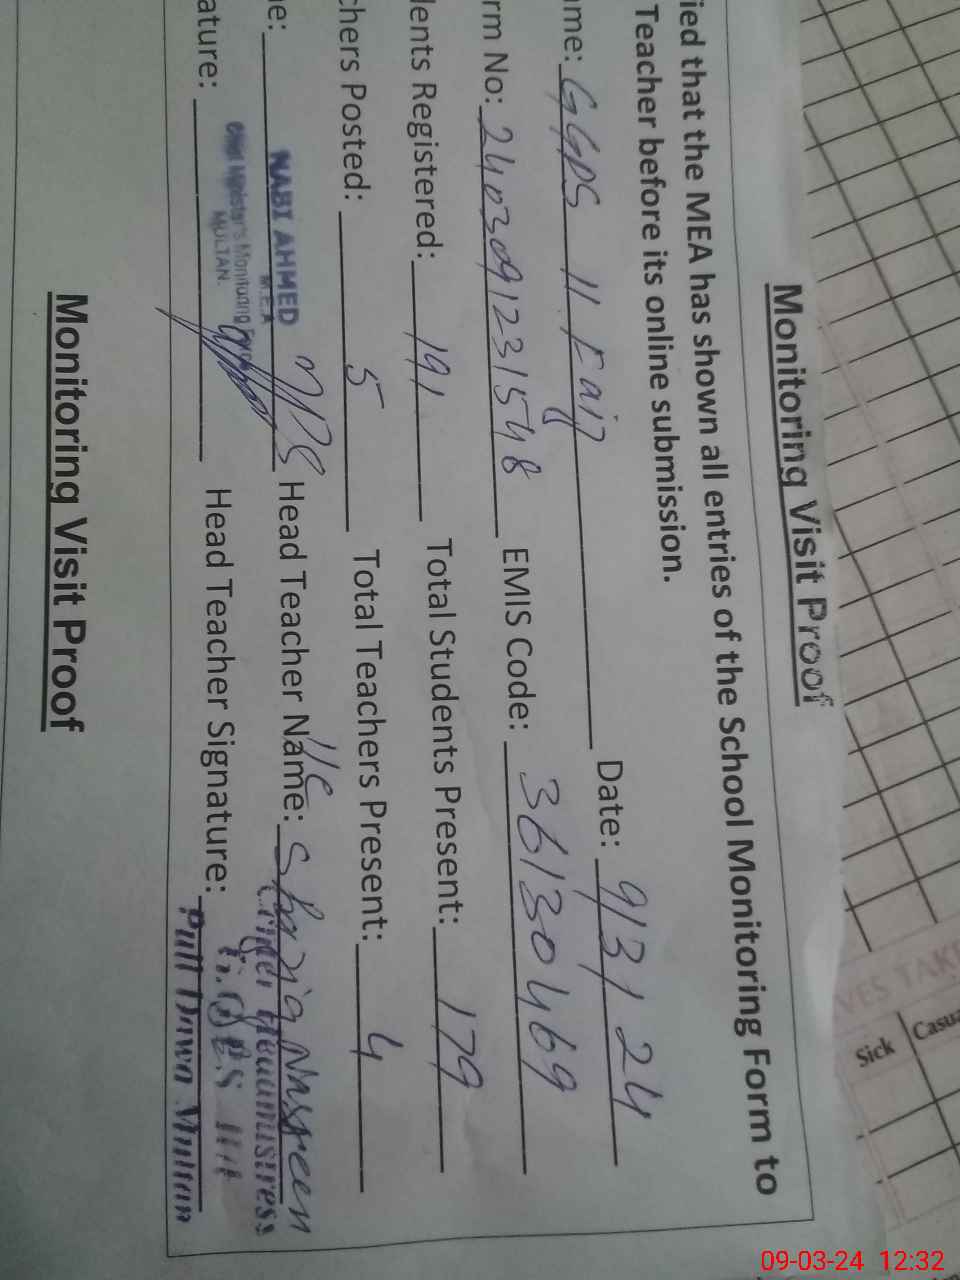 Monitoring Visit Proof
ied that the MEA has shown all entries of the School Monitoring Form to
Teacher before its online submission.
me: GGPS 11 Date: 9/3/24
rm No: 2403091231548 EMIS Code: 36130469
dents Registered: 191 Total Students Present: 179
chers Posted: 5 Total Teachers Present: 4
e: NABI AHMED Head Teacher Name: I/C Shazia Nasreen
M.E.A
Chief Minister's Monitoring Force
MULTAN.
ature: Head Teacher Signature:
Monitoring Visit Proof
VES TAK
Sick Casua
09-03-24 12:32